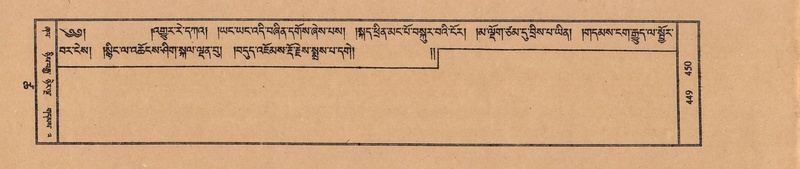 ༄༅། །འགྱུར་རེ་དཀའ། །ཡང་ཡང་འདི་བཞིན་དགོས་ཞེས་པས། །སྨད་ཕྲིན་མང་པོ་བསྐུར་བའི་ངོར། །མ་ལྡོག་ཙམ་དུ་བྲིས་པ་ཡིན། །གདམས་ངག་རྒྱུད་ལ་སྦྱོར་
བར་ངེས། །སྙིང་ལ་འཆོངས་ཤིག་སྐལ་ལྡན་བུ། །བདུད་འཇོམས་རྡོ་རྗེས་སྨྲས་པ་དགེ།། །།
450
449